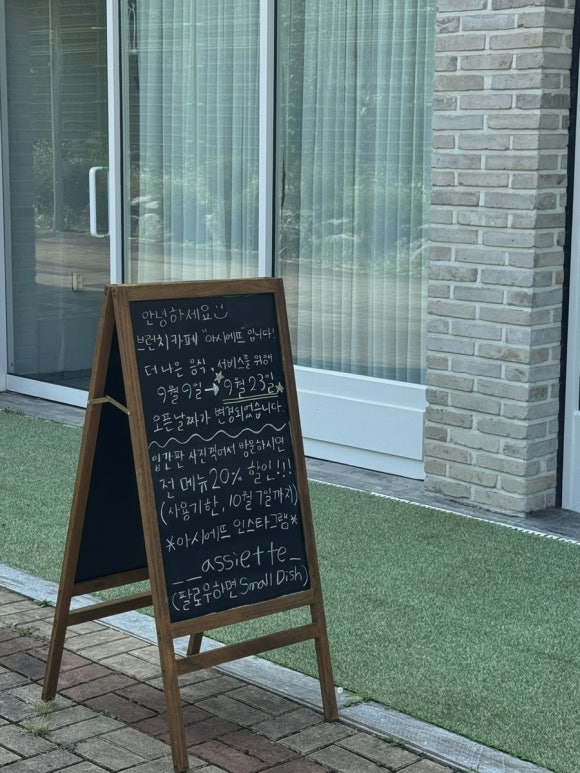 안녕하세요
브런치카페 "아시에뜨"입니다!
더 나은 음식, 서비스를 위해
9월 9일→9월 23일
오픈날짜가 변경되었습니다.
입간판 사진찍어서 방문하시면
전 메뉴 20% 할인!!!
(사용기한, 10월 7일까지)
*아시에뜨 인스타그램*
__assiette_
(팔로우하면 Small Dish)